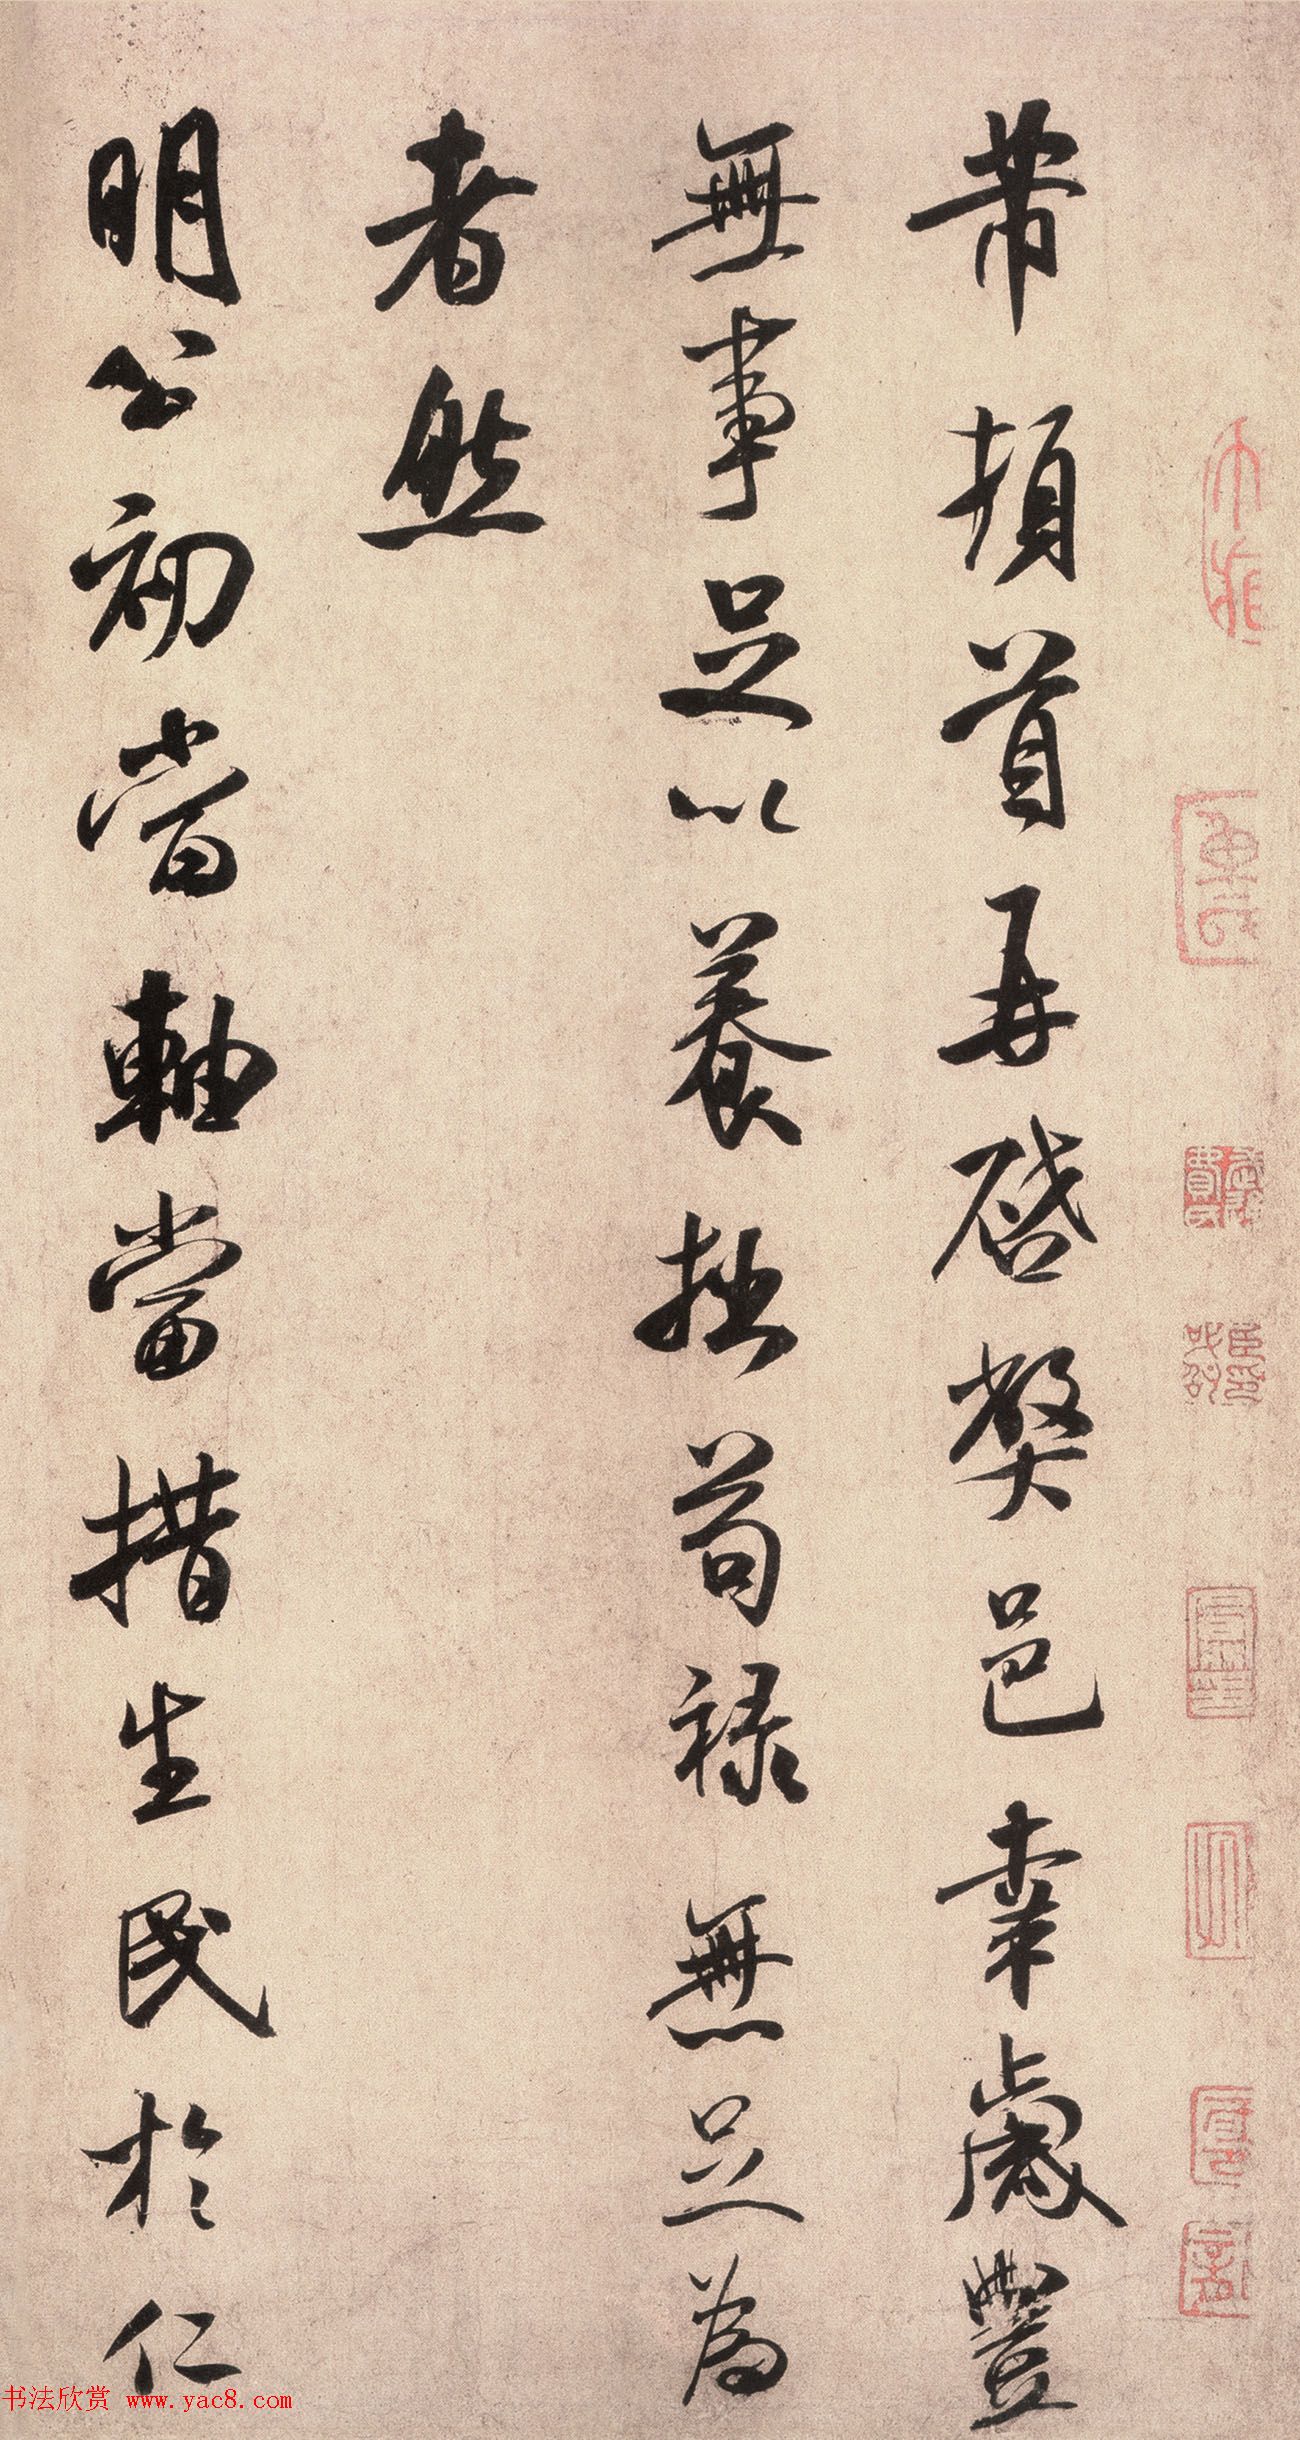 芾頓首再啓弊邑幸歲豐
無事足以養拙苟禄無足為
者然
明公初當軸當措生民於仁
书法欣赏 www.yac8.com